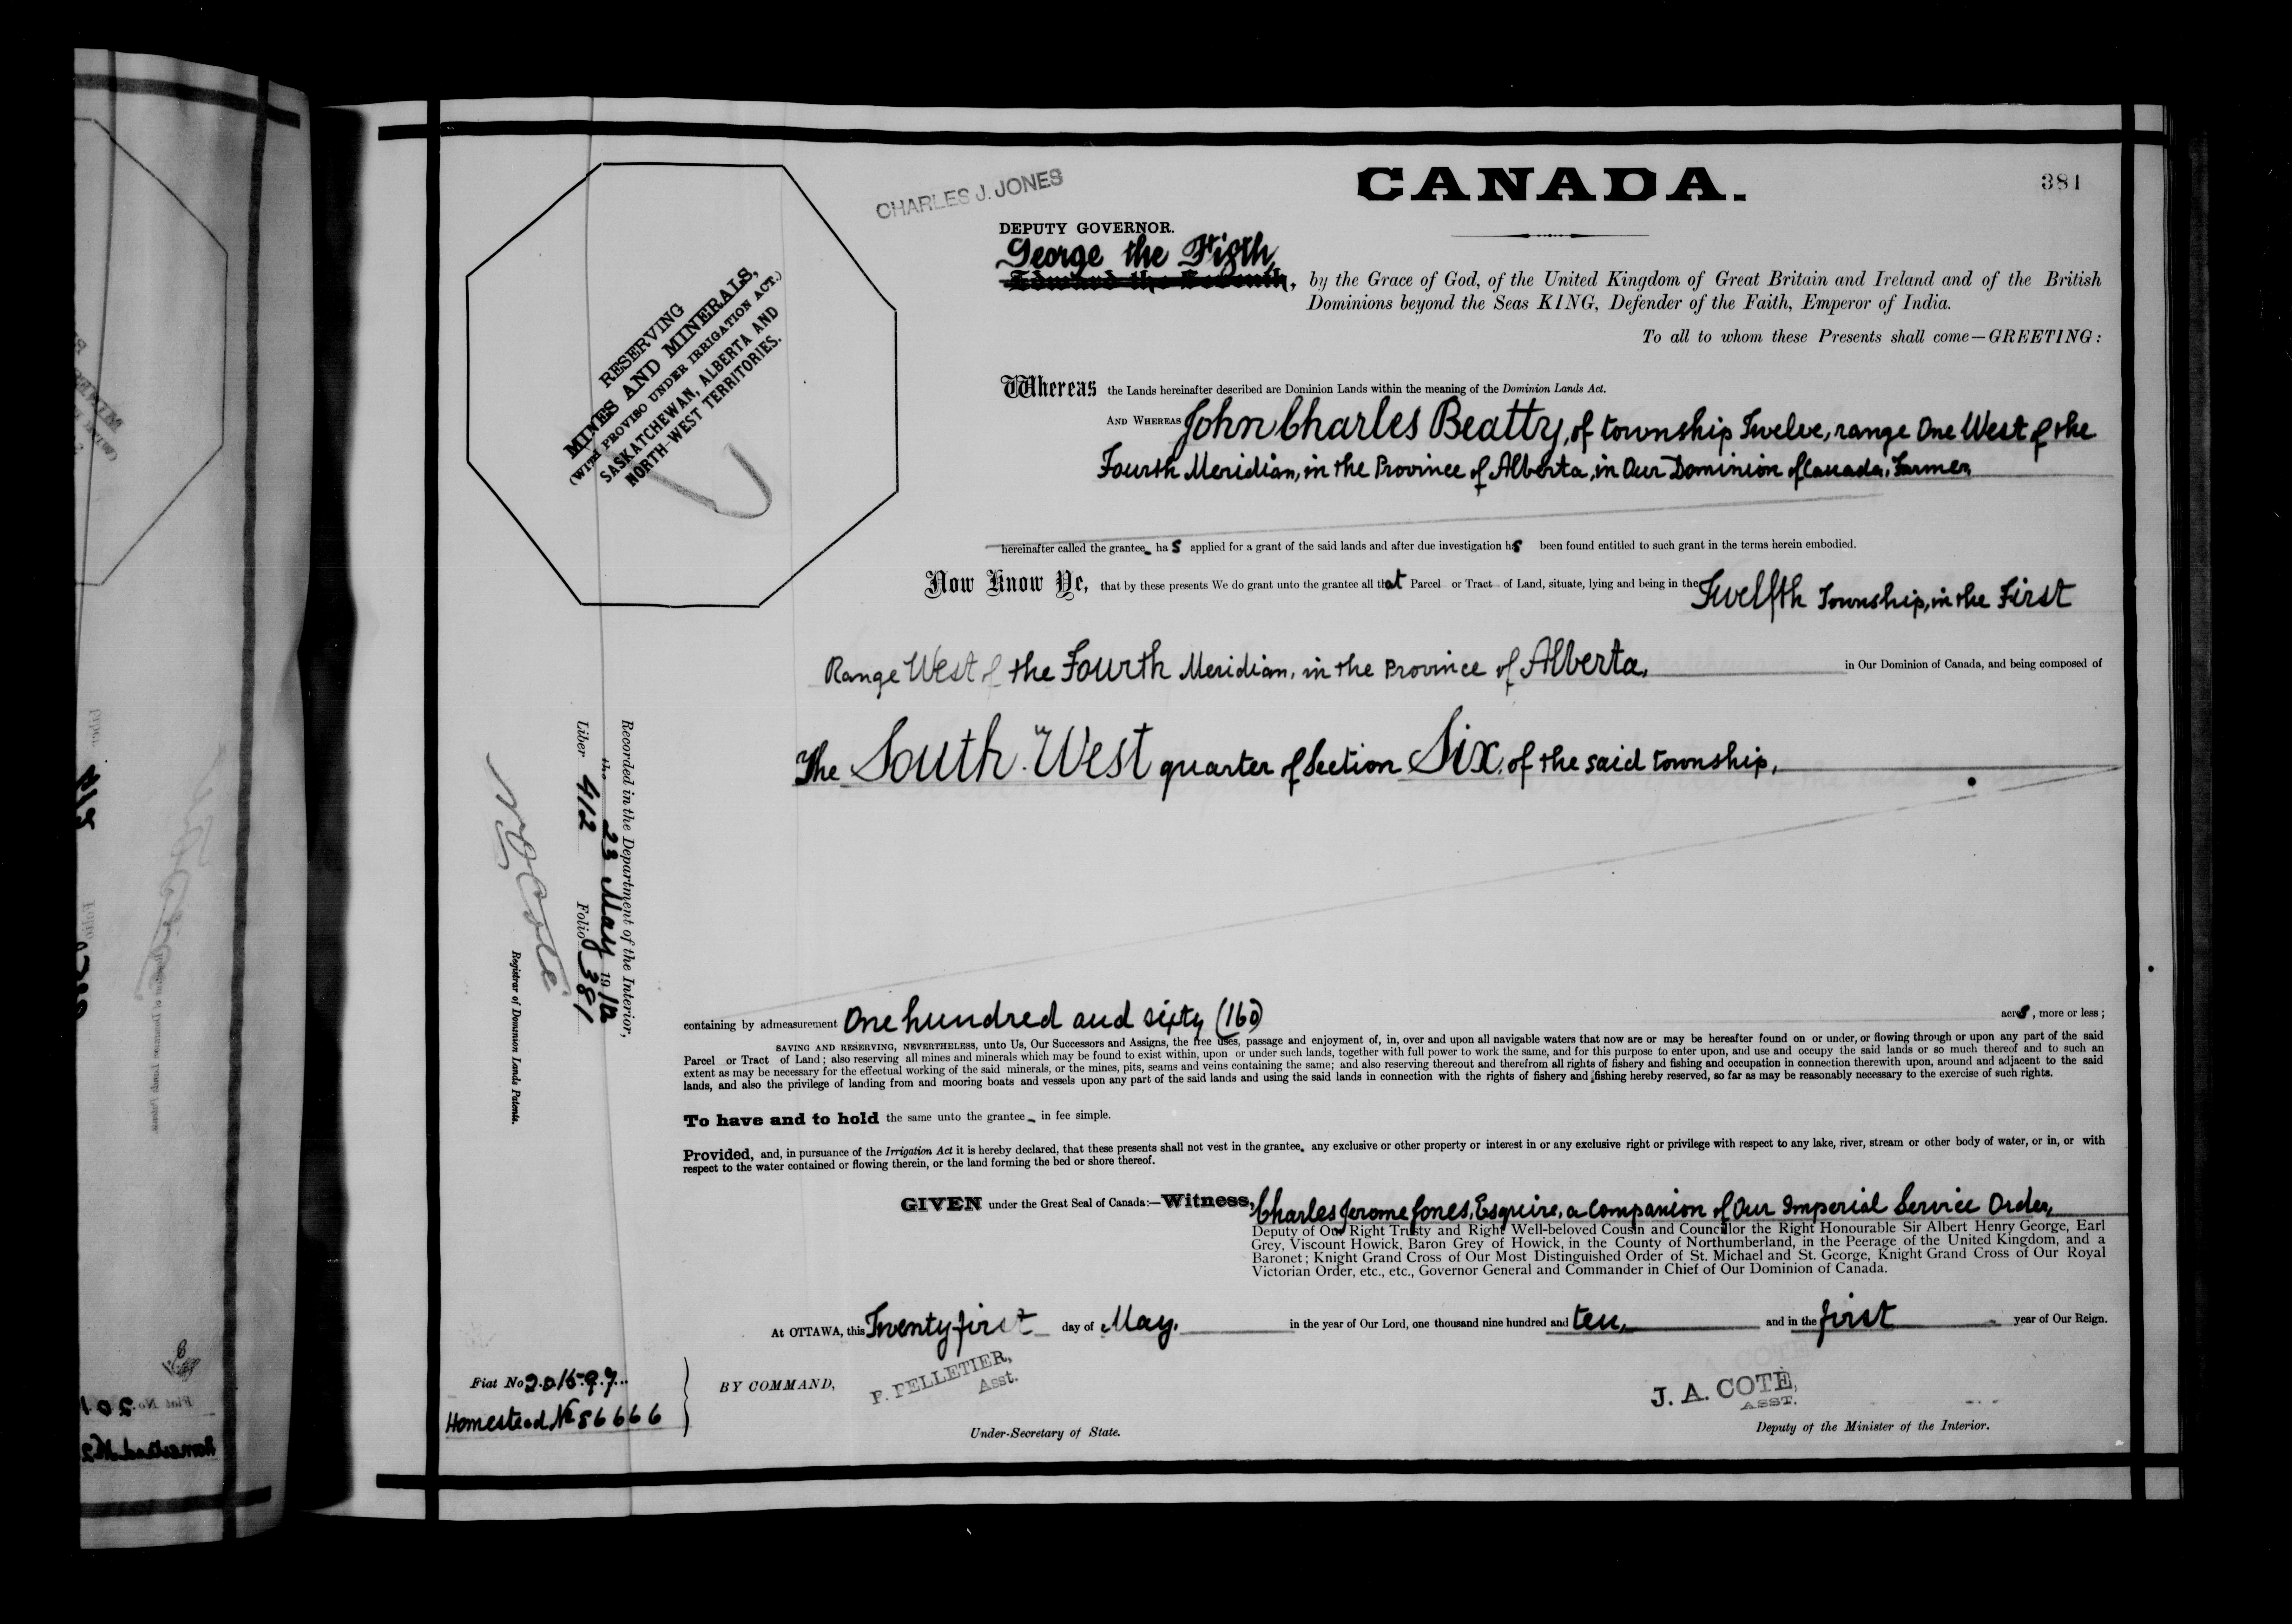 CANADA.
381
CHARLES J. JONES
DEPUTY GOVERNOR.
George the Fifth,
Edward the Seventh, by the Grace of God, of the United Kingdom of Great Britain and Ireland and of the British
Dominions beyond the Seas KING, Defender of the Faith, Emperor of India.
To all to whom these Presents shall come—GREETING:
RESERVING
MINES AND MINERALS,
(WITH PROVISO UNDER IRRIGATION ACT.)
SASKATCHEWAN, ALBERTA AND
NORTH-WEST TERRITORIES.
Whereas the Lands hereinafter described are Dominion Lands within the meaning of the Dominion Lands Act.
AND WHEREAS John Charles Beatty, of township Twelve, range One West of the
Fourth Meridian, in the Province of Alberta, in Our Dominion of Canada, Farmer,
hereinafter called the grantee has applied for a grant of the said lands and after due investigation has been found entitled to such grant in the terms herein embodied.
Now Know Ye, that by these presents We do grant unto the grantee all that Parcel or Tract of Land, situate, lying and being in the Twelfth Township, in the First
Range West of the Fourth Meridian, in the Province of Alberta, in Our Dominion of Canada, and being composed of
The South West quarter of Section Six, of the said township,
Recorded in the Department of the Interior,
the 23 May 1910
Liber 412 Folio 381
N O Coté
Registrar of Dominion Lands Patents.
containing by admeasurement One hundred and sixty (160) acres, more or less;
SAVING AND RESERVING, NEVERTHELESS, unto Us, Our Successors and Assigns, the free uses, passage and enjoyment of, in, over and upon all navigable waters that now are or may be hereafter found on or under, or flowing through or upon any part of the said
Parcel or Tract of Land; also reserving all mines and minerals which may be found to exist within, upon or under such lands, together with full power to work the same, and for this purpose to enter upon, and use and occupy the said lands or so much thereof and to such an
extent as may be necessary for the effectual working of the said minerals, or the mines, pits, seams and veins containing the same; and also reserving thereout and therefrom all rights of fishery and fishing and occupation in connection therewith upon, around and adjacent to the said
lands, and also the privilege of landing from and mooring boats and vessels upon any part of the said lands and using the said lands in connection with the rights of fishery and fishing hereby reserved, so far as may be reasonably necessary to the exercise of such rights.
To have and to hold the same unto the grantee in fee simple.
Provided, and, in pursuance of the Irrigation Act it is hereby declared, that these presents shall not vest in the grantee, any exclusive or other property or interest in or any exclusive right or privilege with respect to any lake, river, stream or other body of water, or in, or with
respect to the water contained or flowing therein, or the land forming the bed or shore thereof.
GIVEN under the Great Seal of Canada:—Witness, Charles Jerome Jones, Esquire, a Companion of Our Imperial Service Order,
Deputy of Our Right Trusty and Right Well-beloved Cousin and Councillor the Right Honourable Sir Albert Henry George, Earl
Grey, Viscount Howick, Baron Grey of Howick, in the County of Northumberland, in the Peerage of the United Kingdom, and a
Baronet; Knight Grand Cross of Our Most Distinguished Order of St. Michael and St. George, Knight Grand Cross of Our Royal
Victorian Order, etc., etc., Governor General and Commander in Chief of Our Dominion of Canada.
At OTTAWA, this Twenty first day of May, in the year of Our Lord, one thousand nine hundred and ten, and in the first year of Our Reign.
Fiat No 201597
Homestead No 86666
BY COMMAND,
P. PELLETIER,
Asst.
Under-Secretary of State.
J. A. COTÉ,
ASST.
Deputy of the Minister of the Interior.